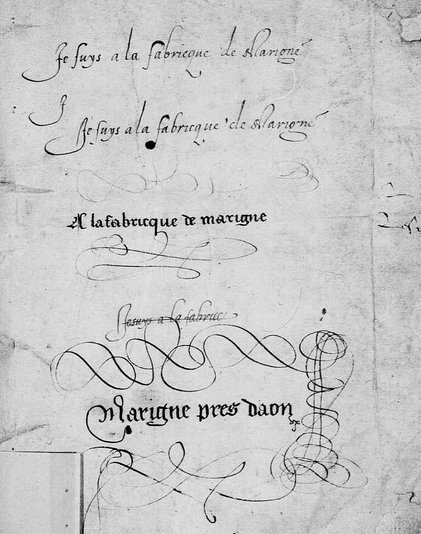 Je suys a la fabricque de Marigne
J
Je suys a la fabricque de Marigne
A la fabricque de marigne
Jesuys a la fabricc
Marigne pres daon